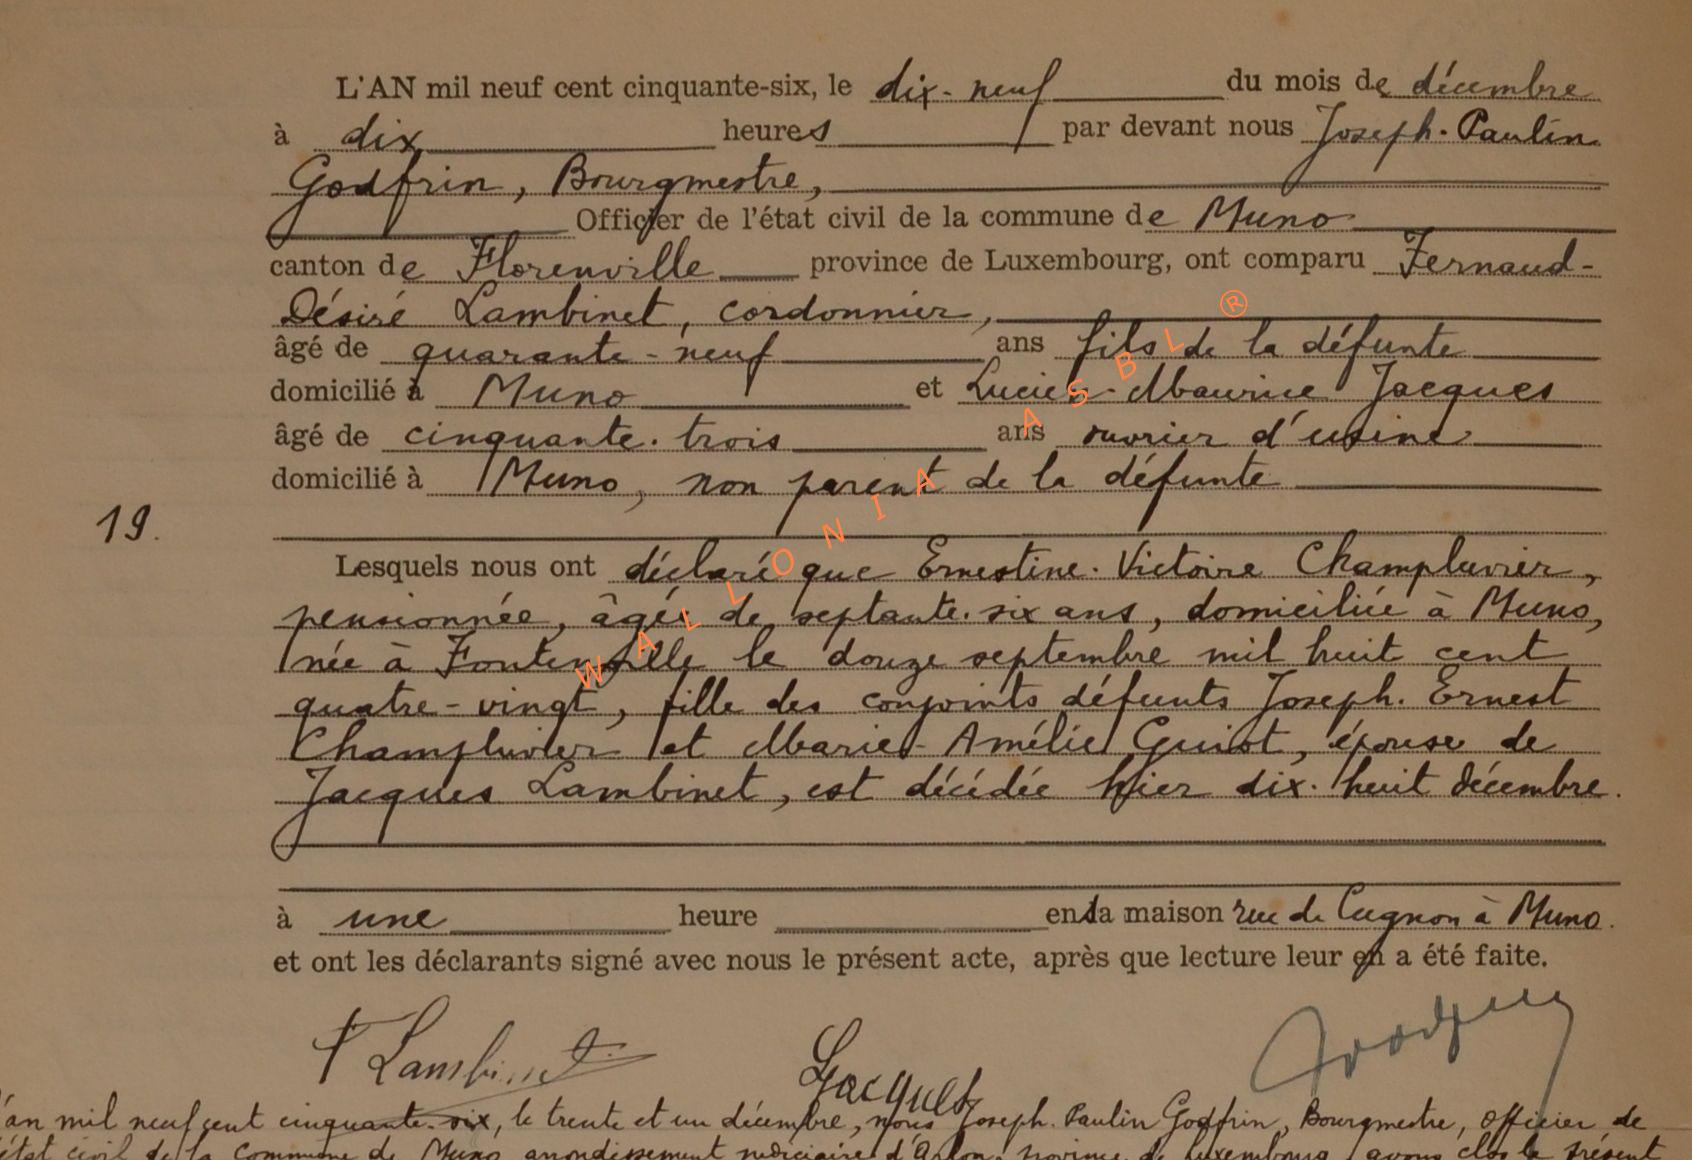 L'AN mil neuf cent cinquante-six, le dix-neuf du mois de décembre
à dix heures par devant nous Joseph-Paulin
Godfrin, Bourgmestre,
Officier de l'état civil de la commune de Muno
canton de Florenville province de Luxembourg, ont comparu Fernand-
Désiré Lambinet, cordonnier,
âgé de quarante-neuf ans fils de la défunte
domicilié à Muno et Lucien-Maurice Jacques
âgé de cinquante-trois ans ouvrier d'usine
domicilié à Muno, non parent de la défunte
19.
Lesquels nous ont déclaré que Ernestine-Victoire Champluvier,
pensionnée, âgée de septante-six ans, domiciliée à Muno,
née à Fontenoille le douze septembre mil huit cent
quatre-vingt, fille des conjoints défunts Joseph-Ernest
Champluvier et Marie-Amélie Guiot, épouse de
Jacques Lambinet, est décédée hier dix-huit décembre.
à une heure en la maison rue de Cugnon à Muno.
et ont les déclarants signé avec nous le présent acte, après que lecture leur en a été faite.
F Lambinet Jacques
l'an mil neuf cent cinquante-six, le trente et un décembre, nous Joseph-Paulin Godfrin, Bourgmestre, officier de
l'état civil de la Commune de Muno arrondissement judiciaire d'Arlon, province de Luxembourg, avons clos le présent
WALLONIA ASBL ®